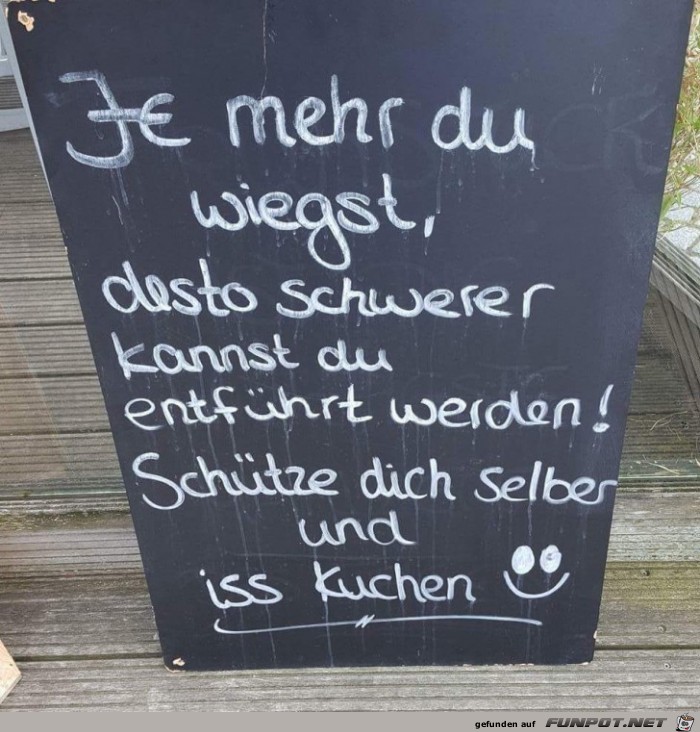 Je mehr du
wiegst,
desto schwerer
kannst du
entführt werden!
Schütze dich selber
und
iss Kuchen
gefunden auf FUNPOT.NET